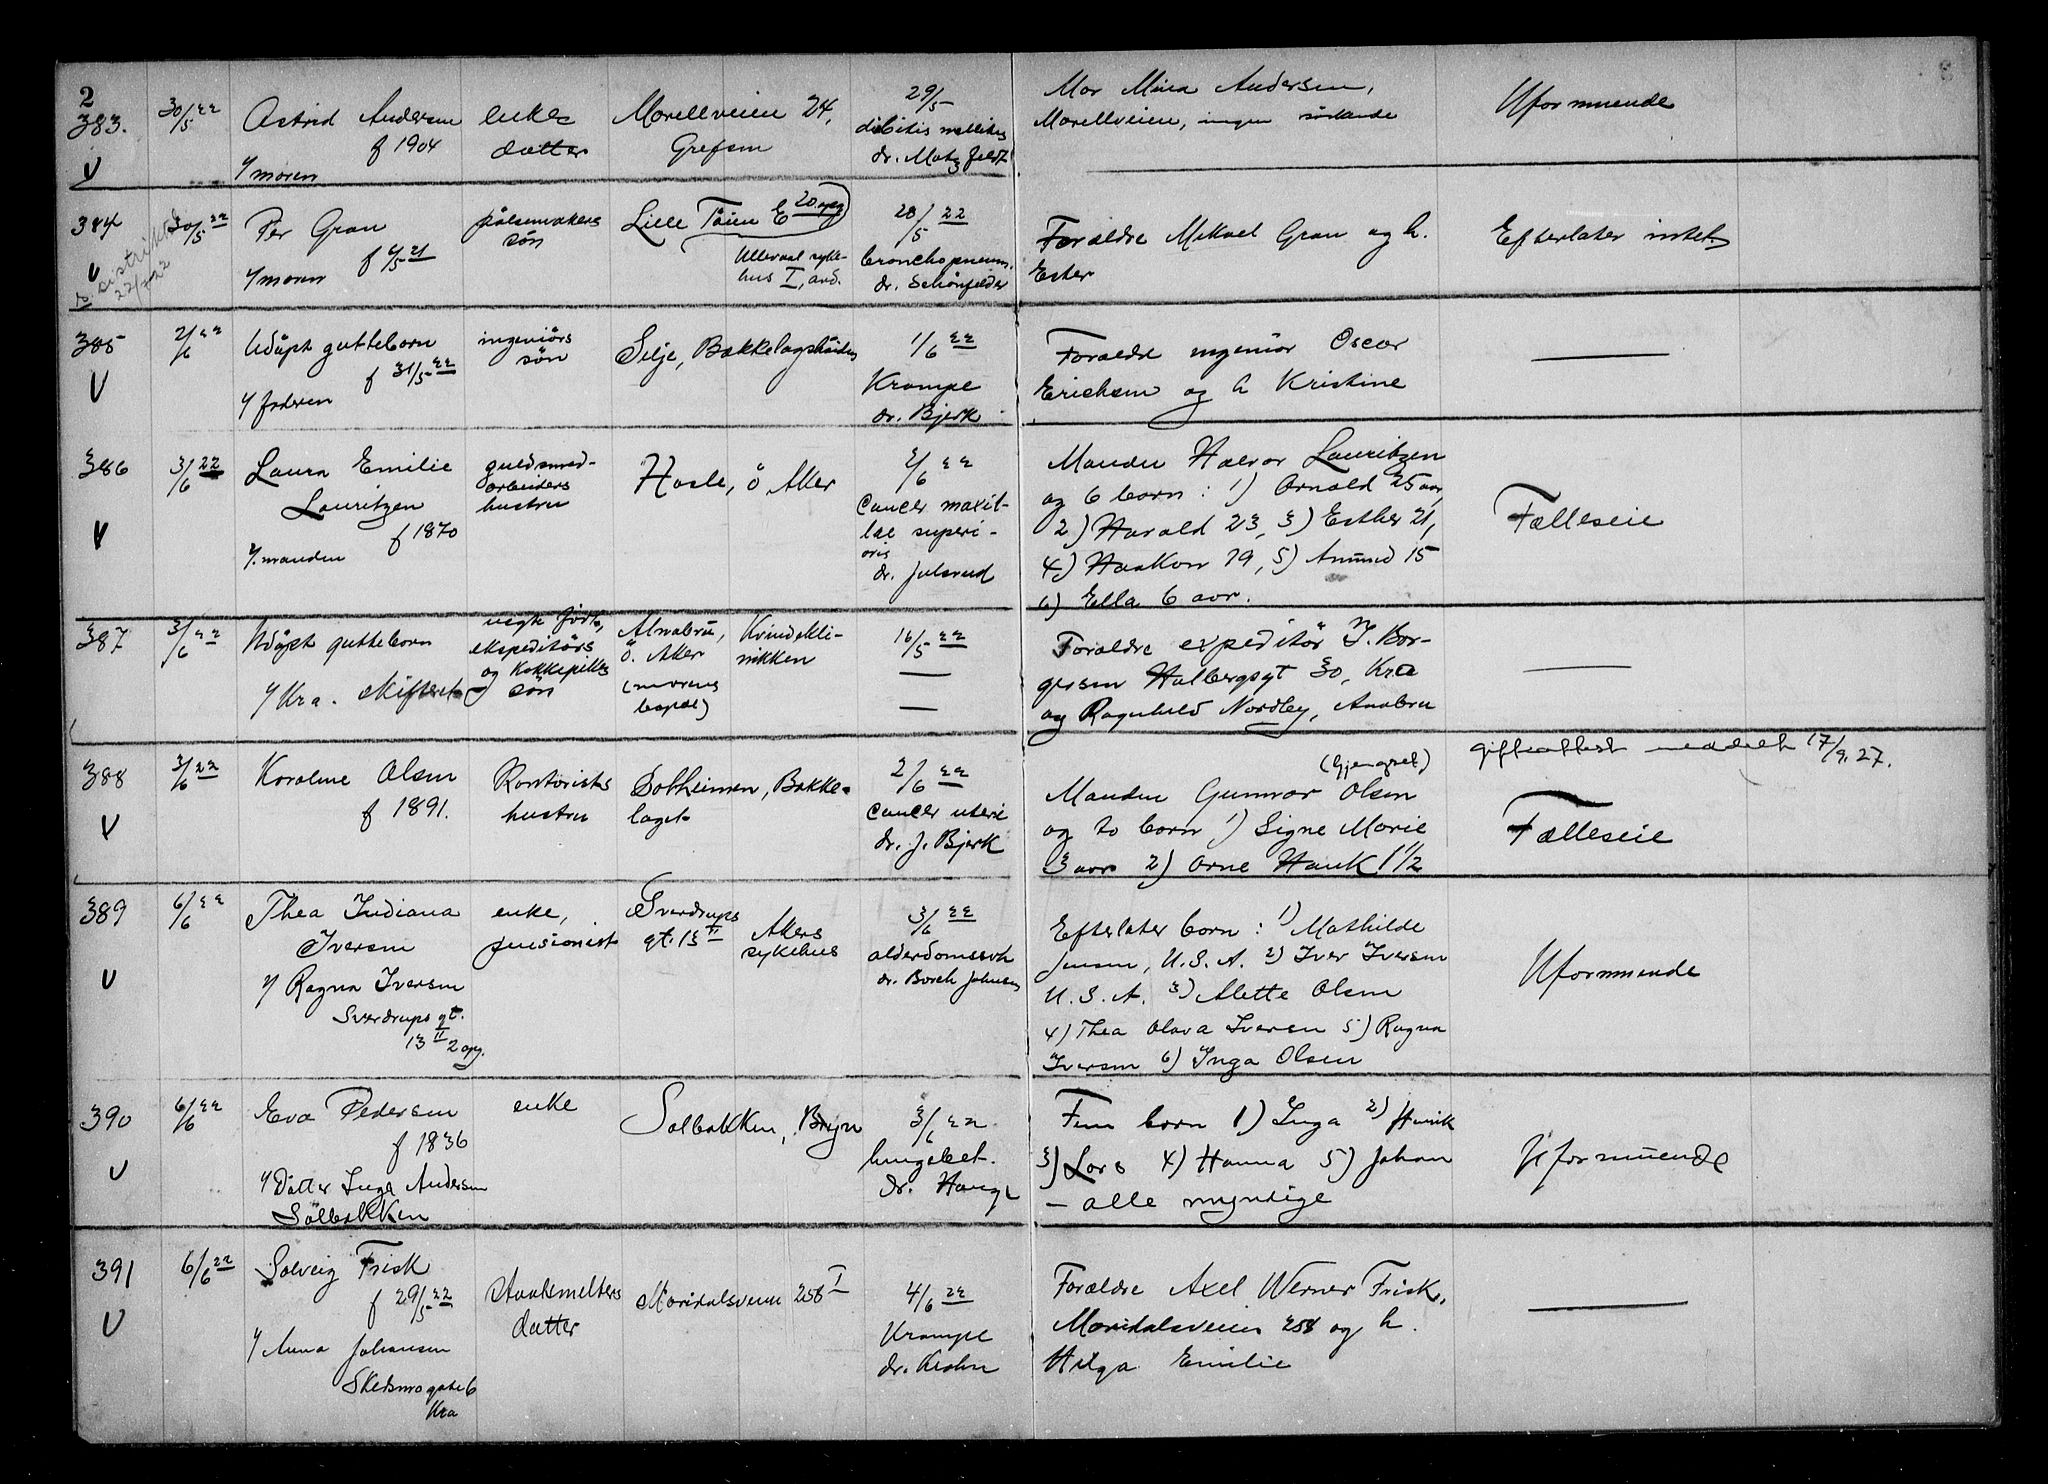 2
383.
30/5 22
Astrid Andersen
f 1904
v/ moren
enkes
datter
Morellveien 24,
Grefsen
29/5
diabetis mellitus
dr. Motzfeldt
Mor Mina Andersen,
Morellveien, ingen sødskende
Uformuende
V
384
30/5 22
Per Gran
f 4/5 21
v/ moren
pølsemakers
søn
Lille Tøien E 20. opg
Ullevaal syke-
hus I, avd.
28/5 22
bronchopneum.
dr. Schønfelder
Forældre Mikael Gran og h.
Ester
Efterlater intet
V
distriktet
385
2/6 22
Udøpt guttebarn
f 31/5 22
v/ faderen
ingeniørs
søn
Selje, Bækkelagshøiden
1/6 22
Krampe
dr. Bjerk
Forældre ingeniør Oscar
Erichsen og h Kristine
V
386
3/6 22
Laura Emilie
Lauritzen
f 1870
v/ manden
guldsmed-
arbeiders
hustru
Hasle, Ö Aker
2/6 22
Cancer maxil-
lae superi-
oris
dr. Julsrud
Manden Halvor Lauritzen
og 6 barn : 1) Arnold 25 aar,
2) Harald 23, 3) Esther 21,
4) Haakon 19, 5) Amund 15
6) Ella 6 aar.
Fælleseie
V
387
3/6 22
Udøpt guttebarn
v/ Kra. skifteret
uegte født,
ekspeditørs
og kokkepikes
søn
Alnabru,
Ö. Aker
(morens
bopæl)
Kvindekli-
nikken
16/5 22
Forældre expeditør J. Bor-
gersen Holbergsgt 30, Kra
og Ragnhild Nordby, Alnabru
388
3/6 22
Karoline Olsen
f 1891.
Kontorists
hustru
Solheimen, Bække-
laget
2/6 22
Cancer uteri
dr. J. Bjerk
(Gjengset)
Manden Gunnar Olsen
og to barn 1) Signe Marie
3 aar 2) Arne Hauk 1 1/2
gifteattest meddelt 17/9.27.
Fælleseie
V
389
6/6 22
Thea Indiana
Iversen
v/ Ragna Iversen
Sverdrups gt.
13 II 2 opg.
enke,
pensionist
Sverdrups
gt. 13 II
Akers
sykehus
3/6 22
alderdomssvk
dr. Borch Johnsen
Efterlater barn : 1) Mathilde
Jensen, U.S.A. 2) Iver Iversen
U.S.A. 3) Alette Olsen
4) Thea Olava Iversen 5) Ragna
Iversen 6) Inga Olsen
Uformuende
V
390
6/6 22
Eva Pedersen
f 1836
v/ Datter Inga Andersen
Solbakken
enke
Solbakken, Bryn
3/6 22
lungebet.
dr. Hauge
Fem barn 1) Inga 2) Henrik
3) Lars 4) Hanna 5) Johan
- alle myndige
Uformuende
V
391
6/6 22
Solveig Frisk
f 29/5 22
v/ Anna Johansen
Skedsmogate 6
Kra
Staalsmelters
datter
Maridalsveien 258 I
4/6 22
Krampe
dr. Krohn
Forældre Axel Werner Frisk,
Maridalsveien 258 og h.
Helga Emilie
V